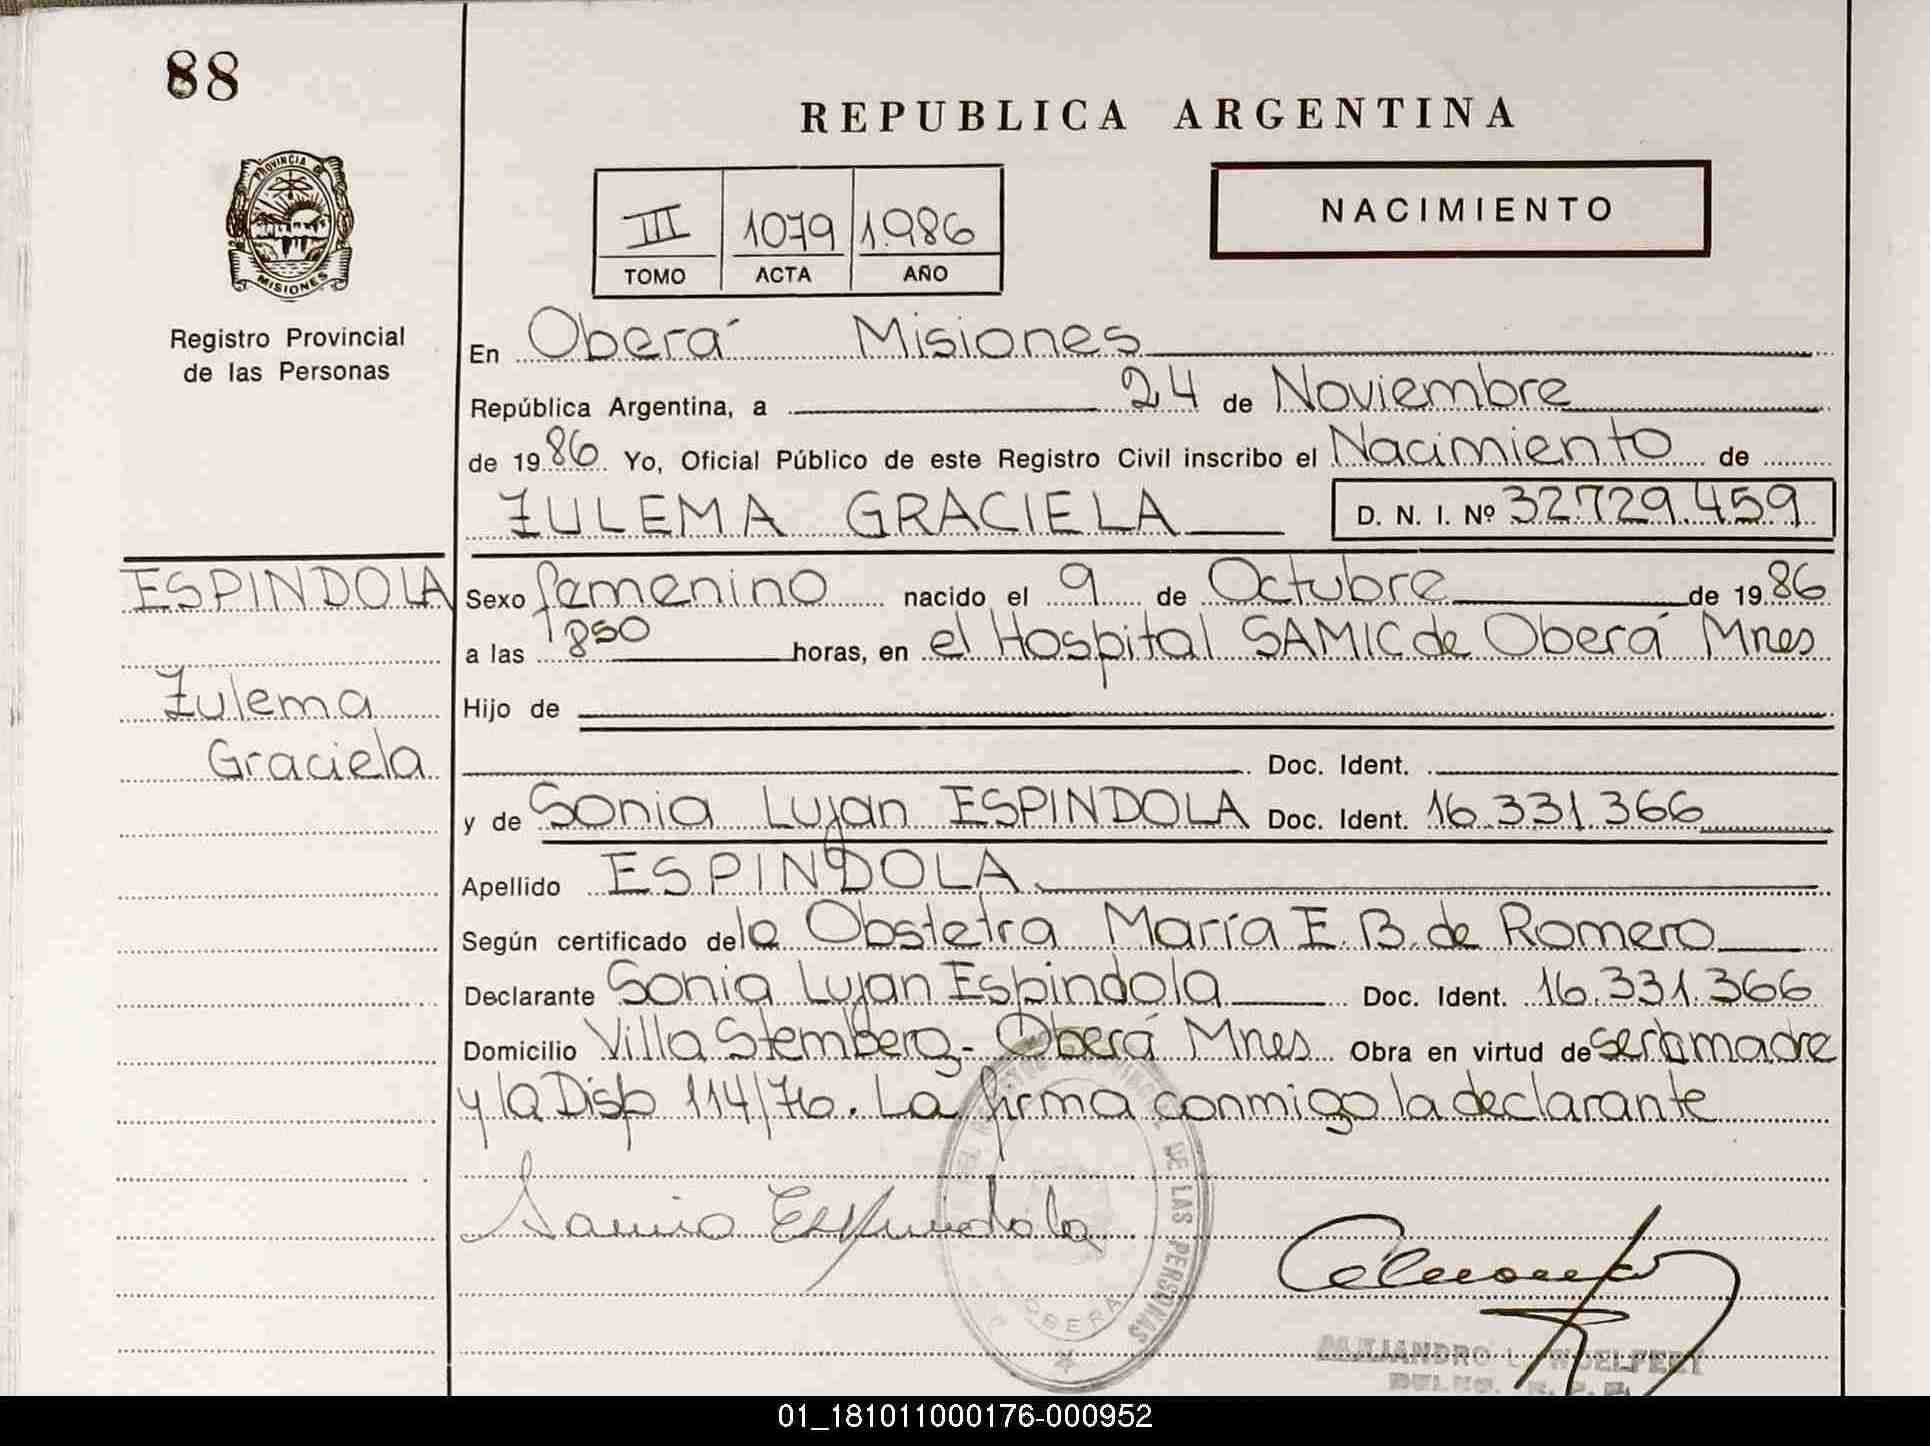 88
REPUBLICA ARGENTINA
PROVINCIA DE
MISIONES
Registro Provincial
de las Personas
III 1079 1.986
TOMO ACTA AÑO
NACIMIENTO
En Oberá Misiones
República Argentina, a 24 de Noviembre
de 1986 Yo, Oficial Público de este Registro Civil inscribo el Nacimiento de
ZULEMA GRACIELA D. N. I. Nº 32.729.459
ESPINDOLA
Zulema
Graciela
Sexo femenino nacido el 9 de Octubre de 1986
a las 850 horas, en el Hospital SAMIC de Oberá Mnes
Hijo de
Doc. Ident.
y de Sonia Lujan ESPINDOLA Doc. Ident. 16.331.366
Apellido ESPINDOLA
Según certificado de la Obstetra María E. B. de Romero
Declarante Sonia Lujan Espindola Doc. Ident. 16.331.366
Domicilio Villa Stemberg - Oberá Mnes Obra en virtud de ser la madre
y la Disp 114/76. La firma conmigo la declarante
Espindola
DE LAS PERSONAS
OBERA
01_181011000176-000952